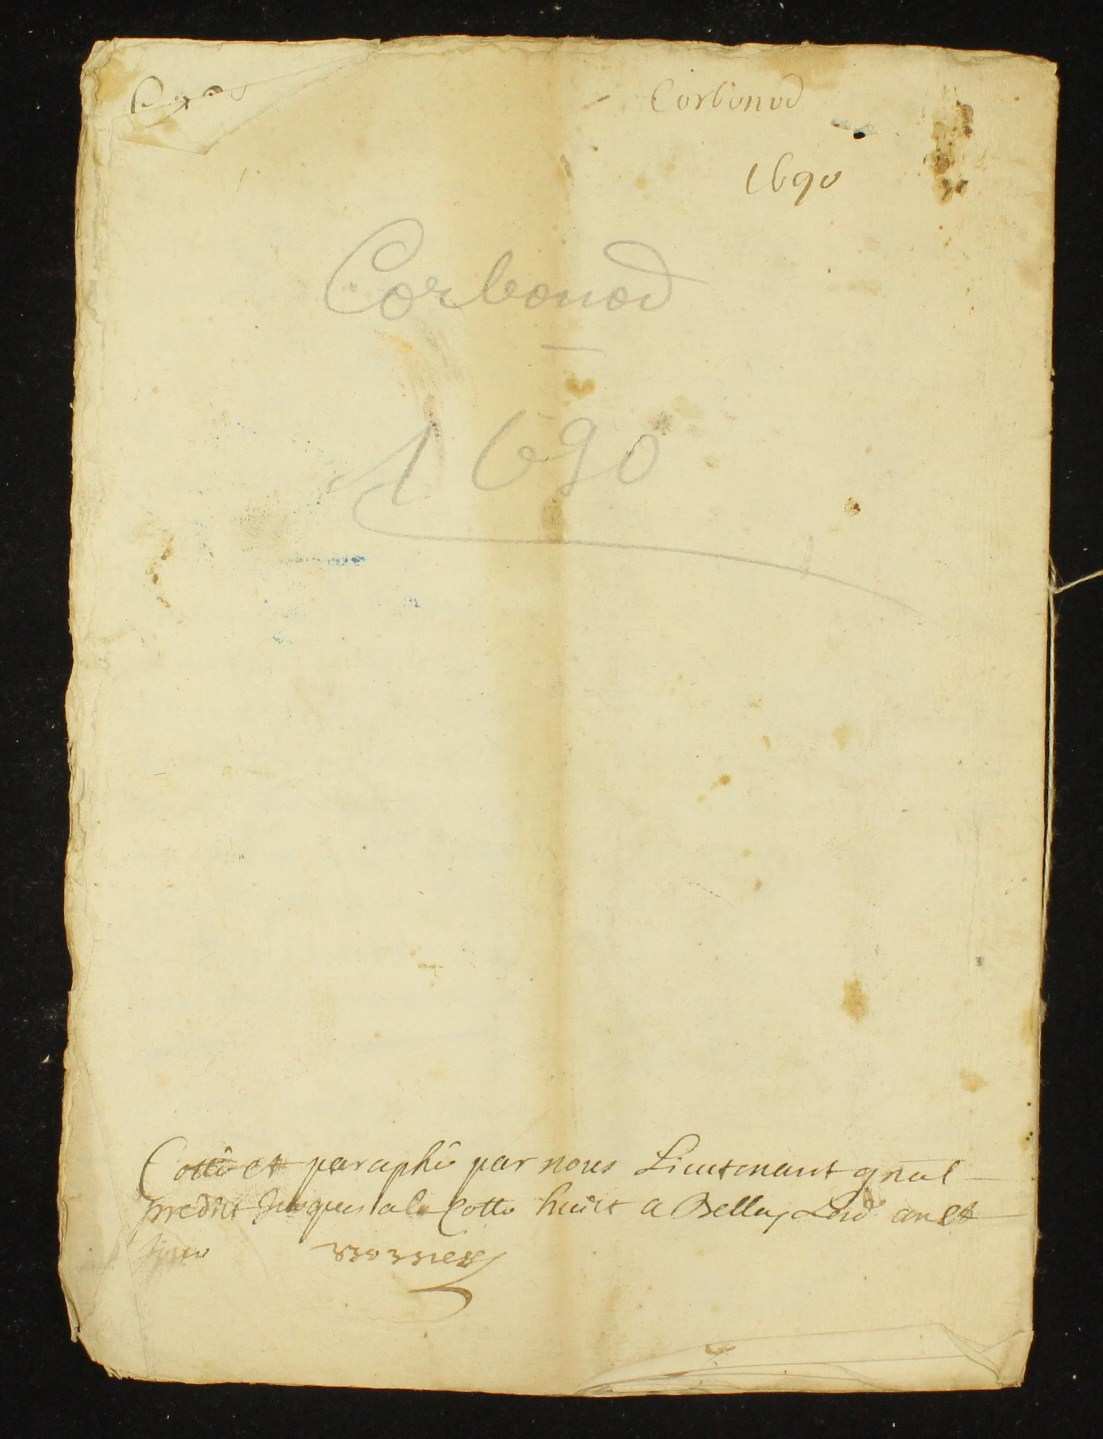 Corbonod
1690
Corbonod
1690
Cotté et paraphé par nous Lieutenant gñal
predict jusques a la Cotte huict a Belley Led. an et
jour